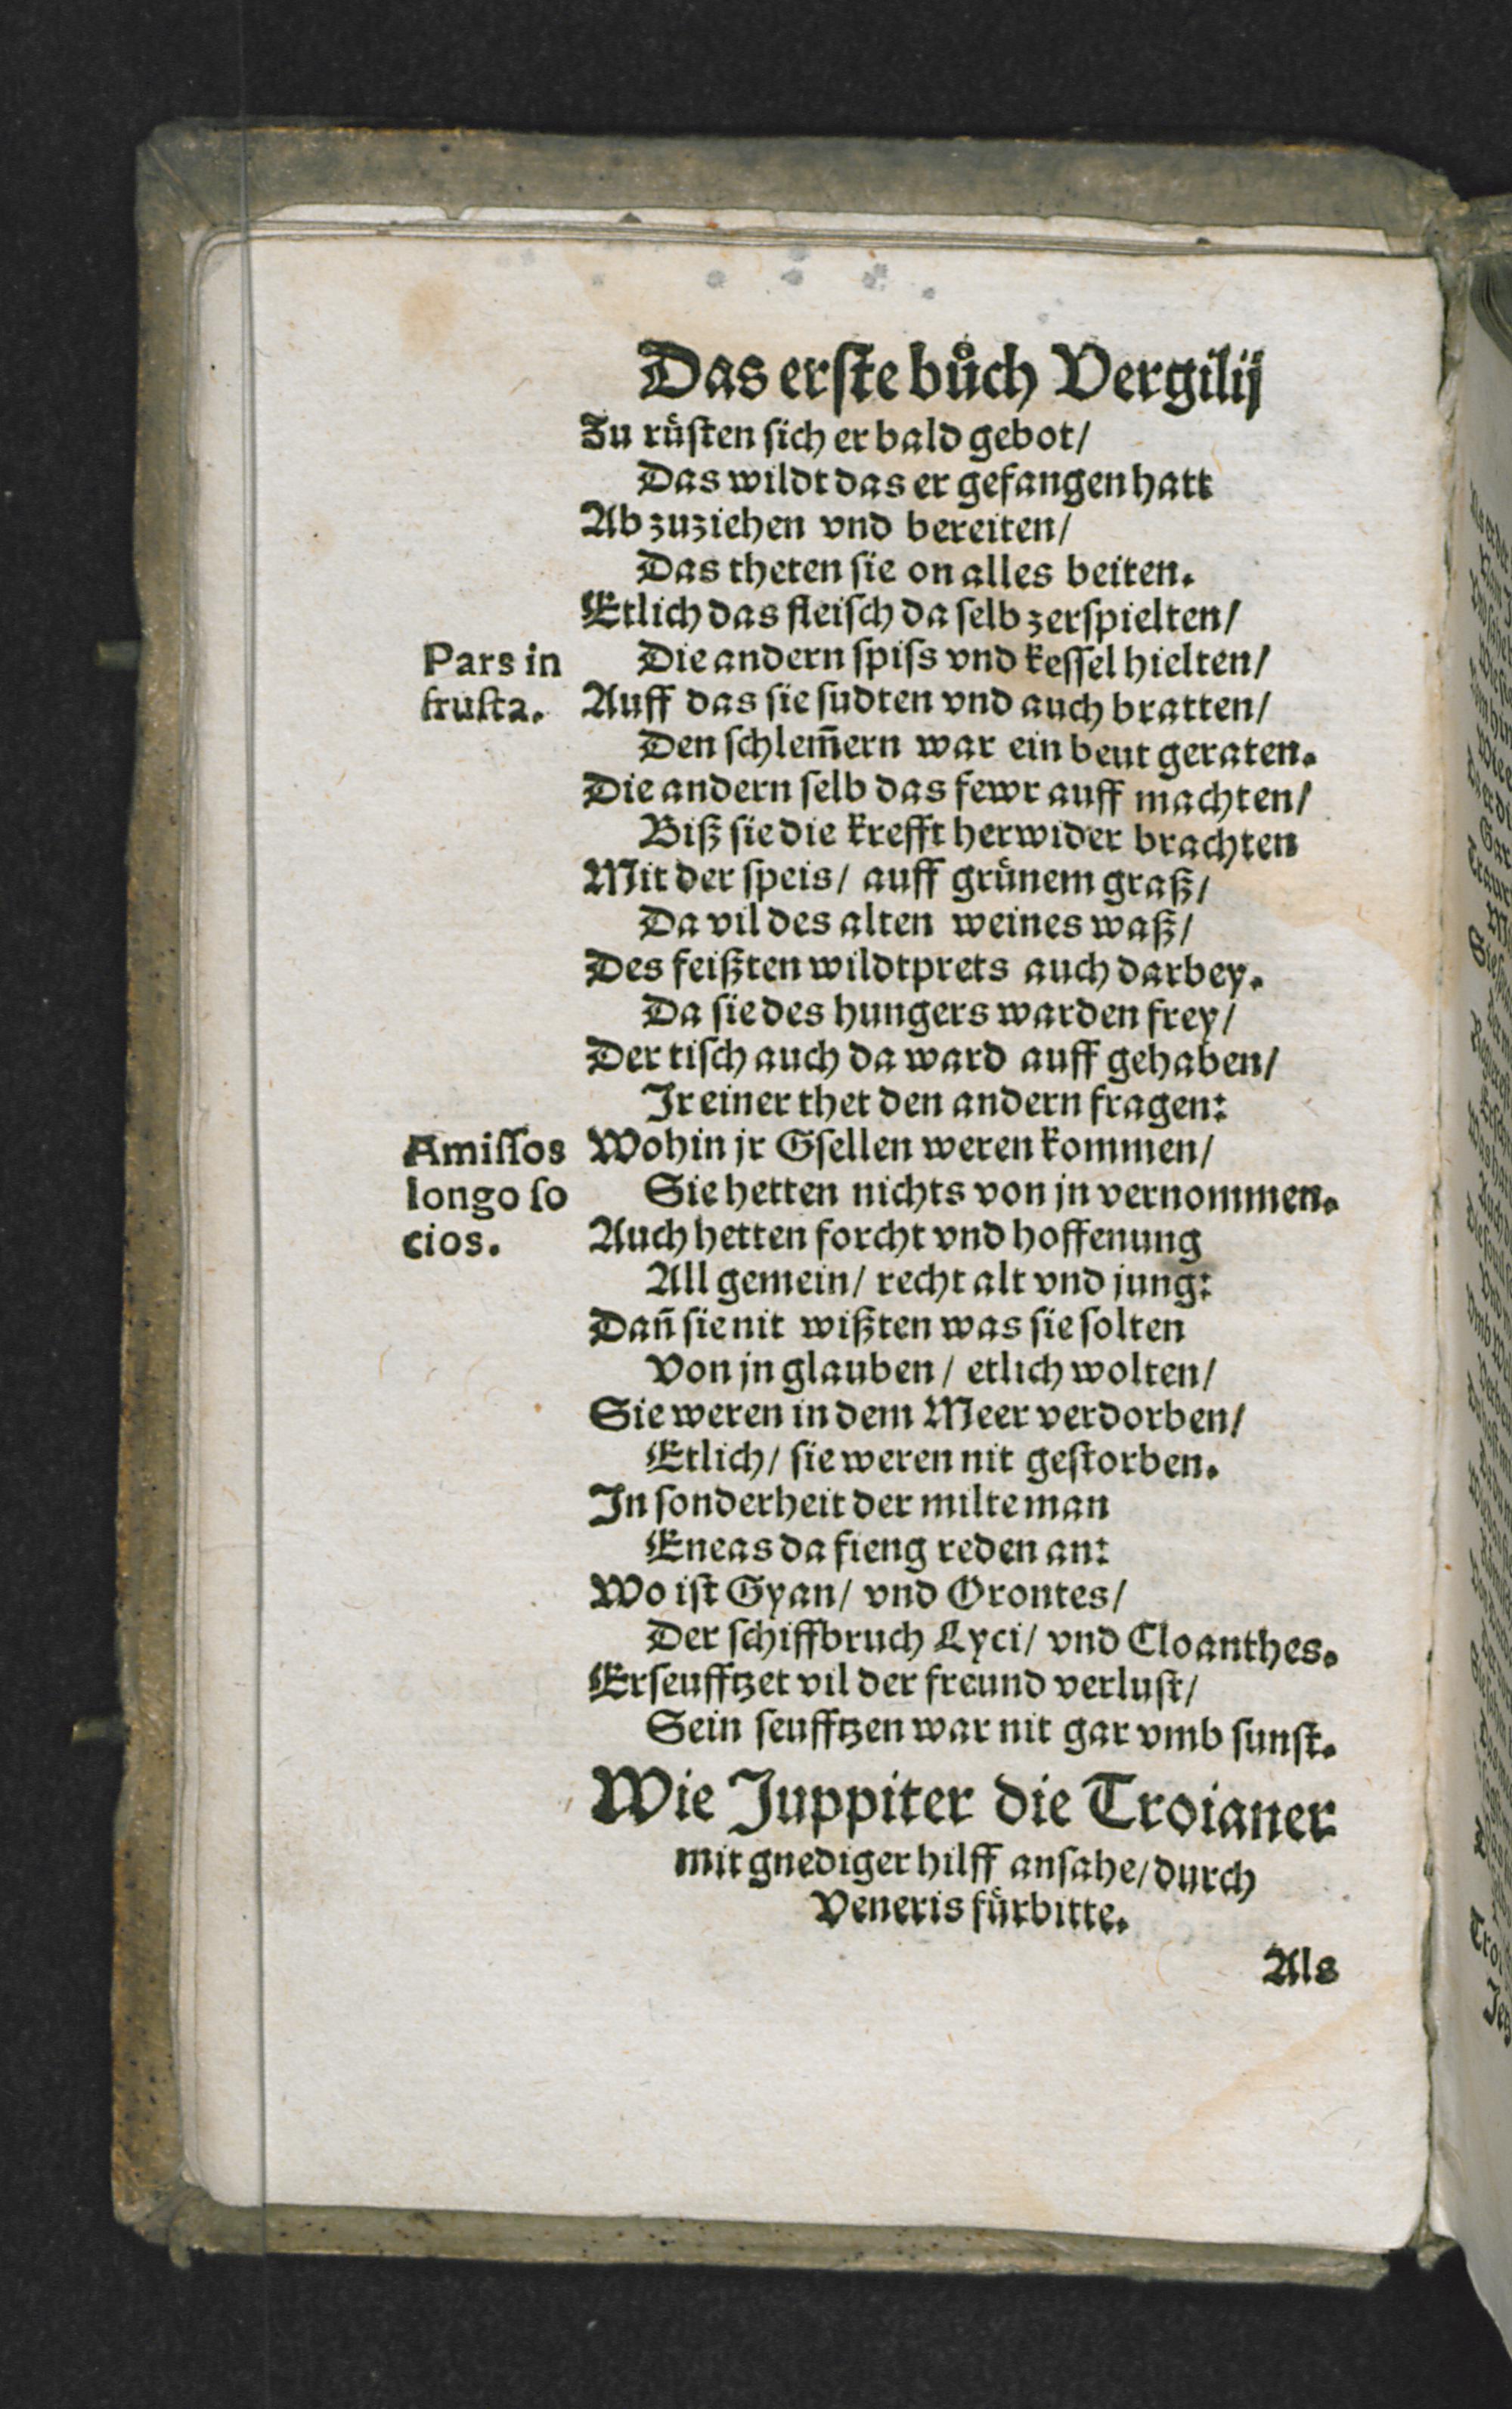 Das erste bůch Vergilij
Zu rüsten sich er bald gebot/
Das wildt das er gefangen hatt
Ab zuziehen vnd bereiten/
Das theten sie on alles beiten.
Etlich das fleisch da selb zerspielten/
Pars in
frusta.
Die andern spiss vnd kessel hielten/
Auff das sie sudten vnd auch bratten/
Den schlem̄ern war ein beut geraten.
Die andern selb das fewr auff machten/
Biß sie die krefft herwider brachten
Mit der speis/ auff grünem graß/
Da vil des alten weines waß/
Des feißten wildtprets auch darbey.
Da sie des hungers warden frey/
Der tisch auch da ward auff gehaben/
Jr einer thet den andern fragen:
Amissos
longo so
cios.
Wohin jr Gsellen weren kommen/
Sie hetten nichts von jn vernommen.
Auch hetten forcht vnd hoffenung
All gemein/ recht alt vnd jung:
Dan̄ sie nit wißten was sie solten
Von jn glauben/ etlich wolten/
Sie weren in dem Meer verdorben/
Etlich/ sie weren nit gestorben.
Jn sonderheit der milte man
Eneas da fieng reden an:
Wo ist Gyan/ vnd Orontes/
Der schiffbruch Lyci/ vnd Cloanthes.
Erseufftzet vil der freund verlust/
Sein seufftzen war nit gar vmb sunst.
Wie Juppiter die Troianer
mit gnediger hilff ansahe/ durch
Veneris fürbitte.
Als